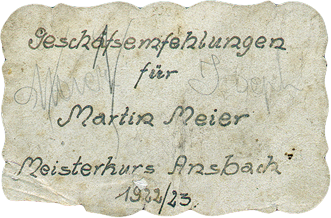 Geschäfsemfehlungen
für
Martin Meier
Meisterkurs Ansbach
1922/23.